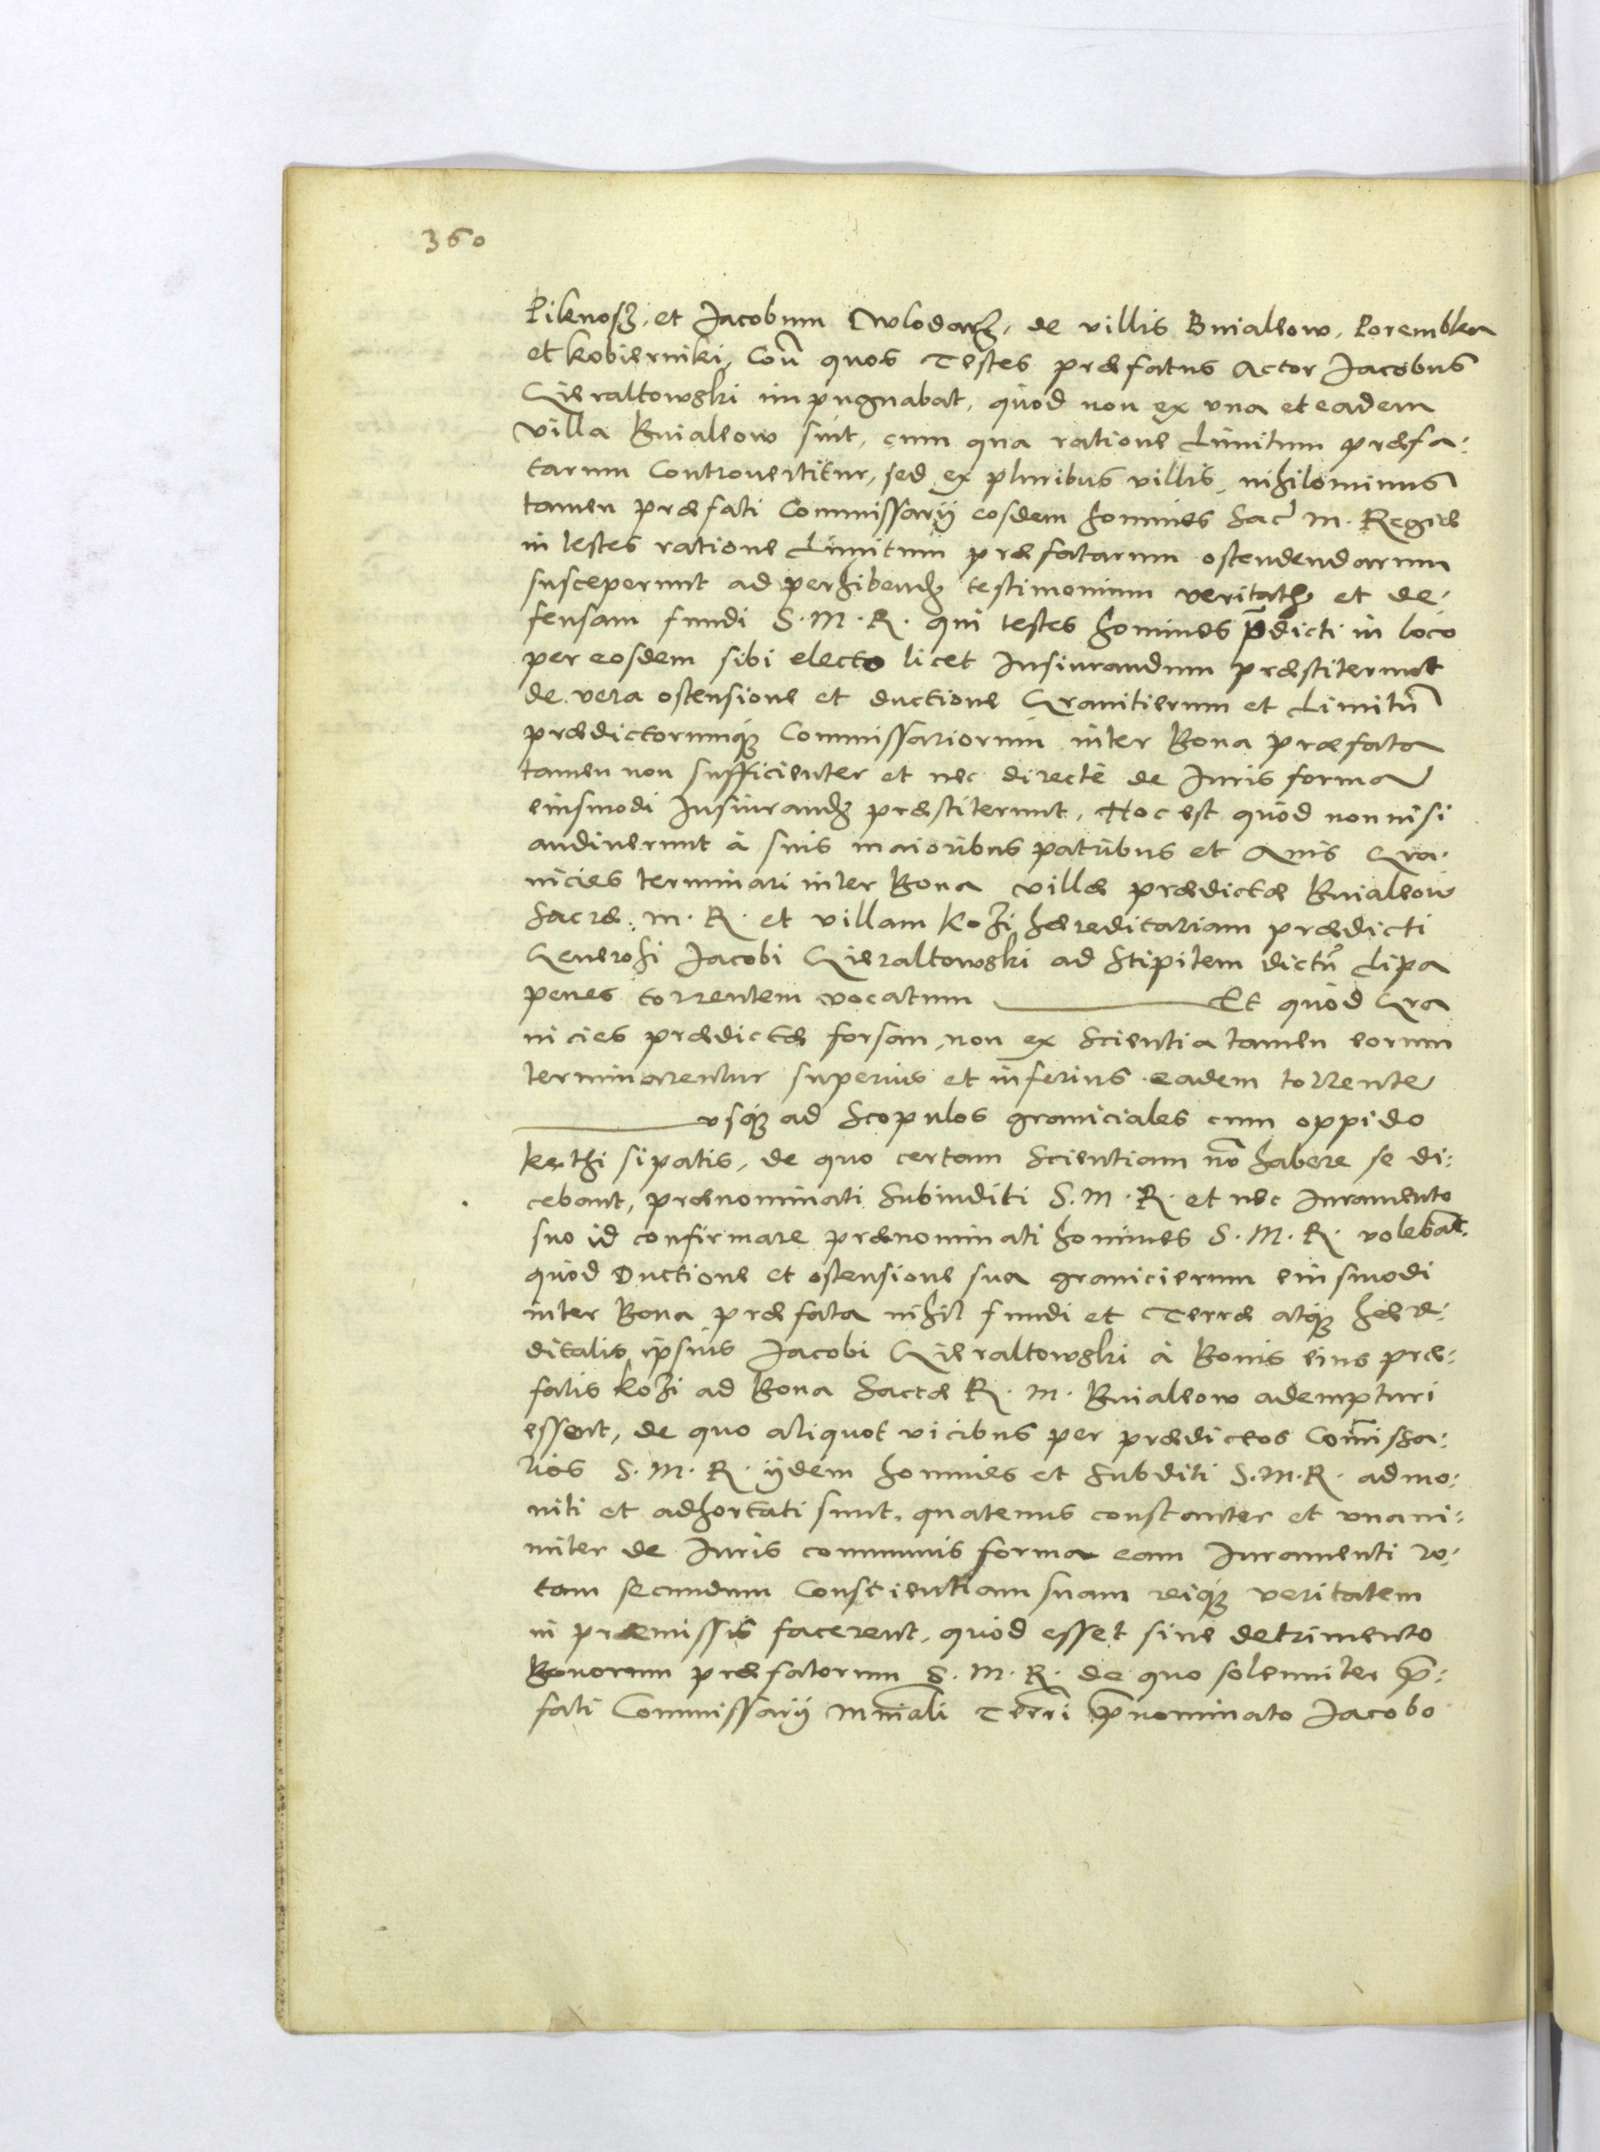 360
Pilenosz, et Jacobum Wlodarz, de villis Buialeow, Porembka
et Kobierniki, Coñ quos Testes præfatus Actor Jacobus
Gieraltowski impugnabat, quòd non ex una et eadem
villa Buialeow sint, cum qua ratione Limitum præfa-
tarum Controuertitur, sed ex pluribus villis, nihilominus
tamen præfati Commissarij eosdem homines Sacr M. Regiæ
in testes ratione Limitum præfatarum ostendendarum
susceperunt ad perhibendz testimonium veritatz et de-
fensam fundi S. M. R. qui testes homines pdicti in loco
per eosdem sibi electo licet Insiurandum præstiterunt
de vera ostensione et ductione Granitierum et Limitũ
prædictorumqz Commissariorum inter Bona præfata
tamen non sufficienter et nec directè de Iuris forma
eiusmodi Insiurandz præstiterunt, Hoc est quòd non nisi
audiuerunt à suis maioribus patribus et Auis Gra-
nicies terminari inter Bona villæ prædictæ Buialeow
Sacræ M. R. et villam Kozi hæreditariam prædicti
Generosi Jacobi Gieraltowski ad Stipitem dictũ Lipa
penes torrentem vocatum Et quòd Gra
nicies prædictæ forsan, non ex Scientia tamen eorum
terminarentur superius et inferius eadem torrente
usqz ad Scopulos graniciales cum oppido
Kethi sipatis, de quo certam Scientiam nõ habere se di-
cebant, prænominati Subinditi S. M. R. et nec Iuramento
suo id confirmare prænominati homines S. M. R. volebãt.
quòd Ductione et ostensione sua granicierum eiusmodi
inter Bona præfata nihil fundi et Terræ atqz hære-
ditatis ipsius Jacobi Gieraltowski à Bonis eius præ-
fatis Kozi ad Bona Sacræ R. M. Buialeow adempturi
essent, de quo aliquot vicibus per prædictos Comissa-
rios S. M. R. ijdem homines et Subditi S. M. R. admo-
niti et adhortati sunt, quatenus constanter et unani-
miter de Iuris communis forma eam Iuramenti ro-
tam secundum Conscientiam suam reiqz veritatem
in præmissis facerent, quòd esset sine detrimento
Bonorum præfatorum S. M. R. de quo solenniter p-
fati Commissarij Mniali Terri pnominato Jacobo